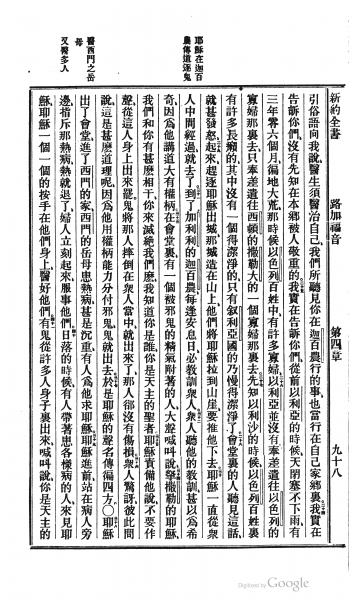 新約全書　路加福音　第四章　九十八
引俗語向我說醫生須醫治自己我們所聽見你在迦百農行的事也當行在自己家鄉裏我實在
告訴你們沒有先知在本鄉被人敬重的我實在告訴你們從前以利亞的時候天閉塞不下雨有
三年零六個月徧地大荒那時候以色列百姓中有許多寡婦以利亞並沒有奉差遣往這些
寡婦那裏去只奉差遣往西頓的撒勒大的一個寡婦那裏去先知以利沙的時候以色列百姓裏
有許多長癩的其中沒有一個得潔淨的只有叙利亞國的乃慢得潔淨了會堂裏的人聽見這話
就甚發怒起來趕逐耶穌出城那城造在山上他們將耶穌拉到山崖要推他下去耶穌一直從衆
人中間經過就去了到了加利利的迦百農每逢安息日必教訓衆人衆人聽他的教訓甚以爲希
奇因爲他講道大有權柄在會堂裏有一個被邪鬼的精氣附著的人大聲喊叫說拏撒勒的耶穌
我們和你有甚麽相干你來滅絕我們麽我知道你是誰你是天主的聖者耶穌責備他說不要作
聲從這人身上出來罷鬼將那人摔倒在衆人當中就出來了那人卻沒有傷損衆人驚訝彼此問
說這是甚麽道理呢因爲他用權柄能力分付邪鬼鬼就出去於是耶穌的聲名傳徧四方〇耶穌
出了會堂進了西門的家西門的岳母患熱病甚是沉重有人爲他求耶穌耶穌進前站在病人旁
邊指斥那熱病熱就退了婦人立刻起來服事他們日落的時候有人帶著患各樣病的人來見耶
穌耶穌一個一個的按手在他們身上醫好他們有鬼從許多人身子裏出來喊叫說你是天主的
耶穌在迦百
農傳道逐鬼
醫西門之岳
母
又醫多人
Digitized by Google